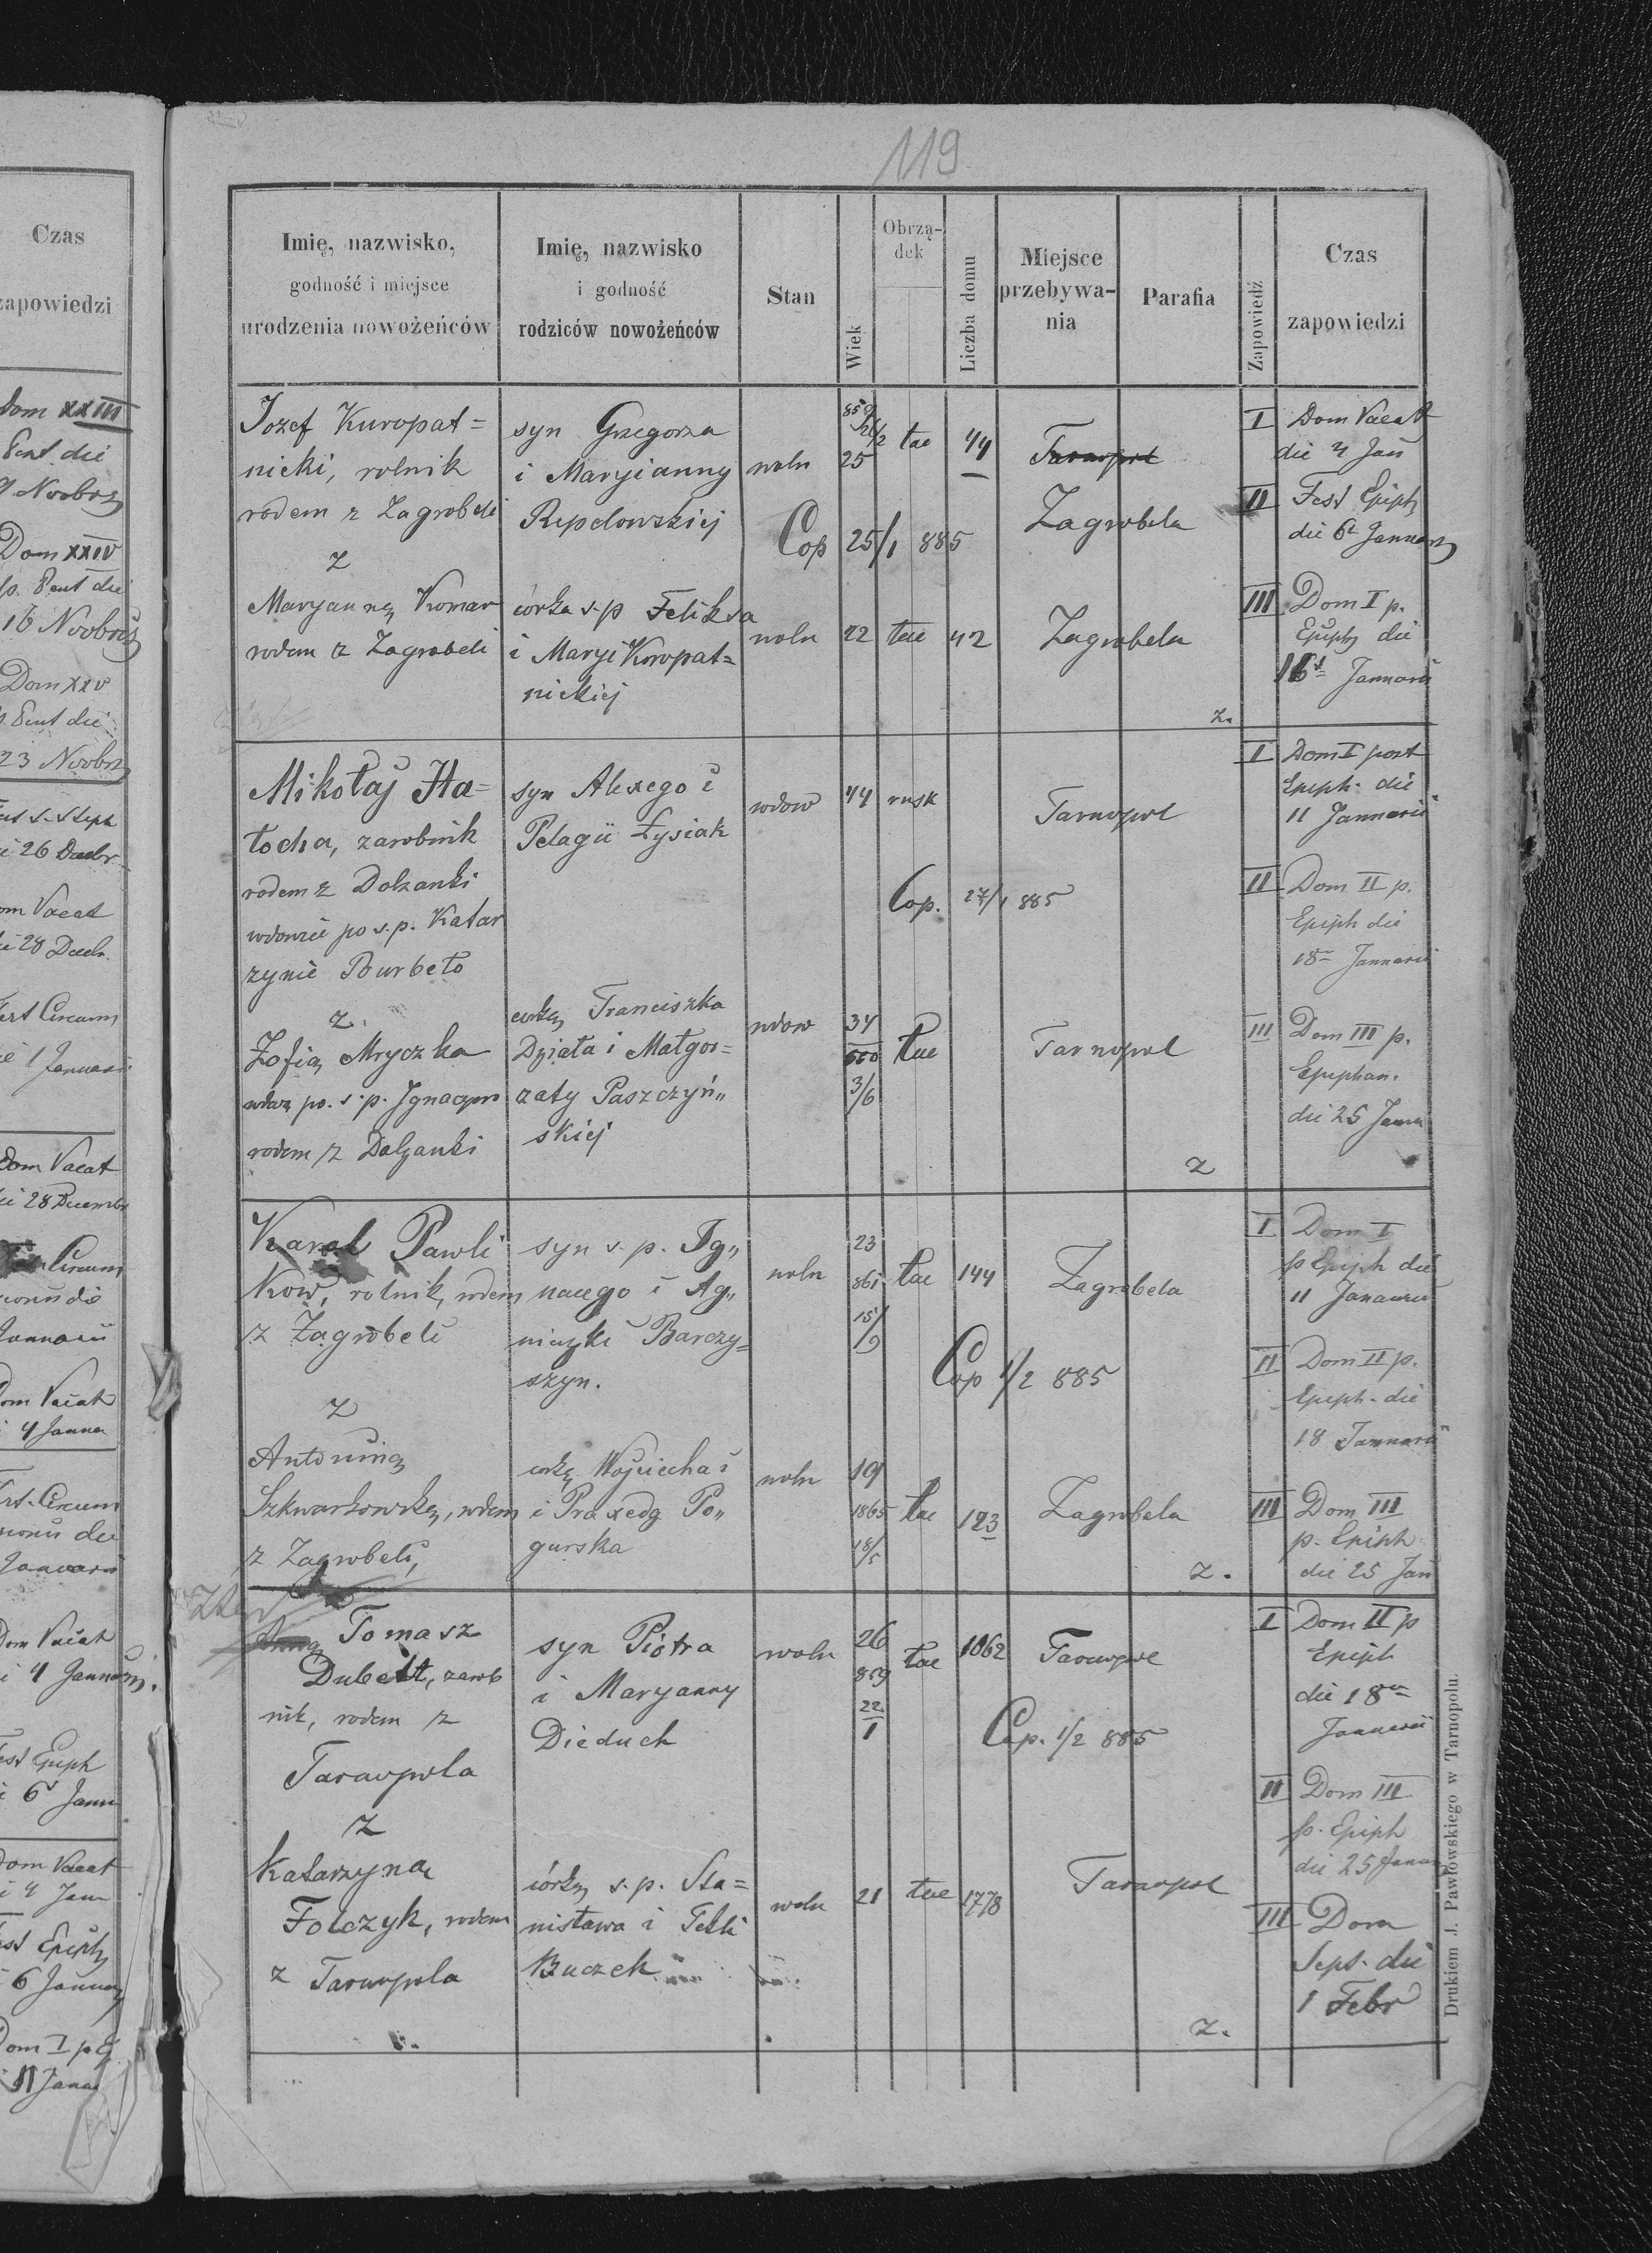 119
Czas
zapowiedzi
Dom XXIII
Pent die
9 Novbris
Dom XXIV
p. Pent die
16 Novbris
Dom XXV
p Pent die
23 Novbris
26 Decbr
Dom Vacat
28 Decbr.
Fest Circum
1 Januarii
Dom Vacat
die 28 Decembr
Circum
Januarii
Dom Vacat
4 Januar
Fest. Circum
Januarii
Dom Vacat
4 Januarii
Fest Epiph
6 Janu
Dom Vacat
4 Janu
Fest Epiph
6 Januar
Dom I p E
11 Janu
Imię, nazwisko,
godność i miejsce
urodzenia nowożeńców
Imię, nazwisko
i godność
rodziców nowożeńców
Stan
Wiek
Obrzą-
dek
Liczba domu
Miejsce
przebywa-
nia
Parafia
Zapowiedź
Czas
zapowiedzi
Jozef Kuropat=
nicki, rolnik
rodem z Zagrobeli
z
Maryanną Komar
rodem z Zagrobeli
syn Grzegorza
i Maryianny
Repelowskiej
córka s.p Feliksa
i Maryi Kuropat=
nickiej
woln
859
25
lac
44
Tarnopol
Zagrobela
Cop 25/1 885
woln 22 lac 42 Zagrobela
z.
I Dom Vacat
die 4 Jan
II Fest Epiph
die 6 Januar
III Dom I p.
Epiph die
Januarii
Mikołaj Ha=
łocha, zarobnik
rodem z Dolzanki
wdowiec po s.p. Katar
zynie Burbeło
z
Zofią Mryczka
wdową po. s.p. Ignacym
rodem z Dolzanki
syn Alexego i
Pelagii Łysiak
córką Franciszka
Działa i Małgor=
zaty Paszczyń„
skiej
wdow 44 rusk Tarnopol
Cop. 27/1 885
wdow 34
3/6
lac
Tarnopol
z
I Dom I post
Epiph. die
11 Januarii
II Dom II p.
Epiph die
18 Januarii
III Dom III p.
Epiphan.
die 25 Janu
Karol Pawli
kow, rolnik, rodem
z Zagrobeli
z
Antoniną
Szkwarkowską, rodem
z Zagrobeli,
syn s.p. Ig„
nacego i Ag„
nieszki Barczy=
szyn.
córką Wojciecha i
i Praxedy Po„
gurska
woln
23
861
15/9
lac 144 Zagrobela
Cop 1/2 885
woln
19
1865
18/5
lac 123 Zagrobela
z.
I Dom I
p Epiph die
11 Januarii
II Dom II p.
Epiph. die
18 Januarii
III Dom III
p. Epiph
die 25 Jan
Tomasz
Dubelt, zarob
nik, rodem z
Tarnopola
z
Katarzyna
Folczyk, rodem
z Tarnopola
syn Piotra
i Maryanny
Dieduch
córką s.p. Sta=
nisława i Tekli
Buczek
woln
26
859
22
1
lac 1062 Tarnopol
Cop. 1/2 885
woln 21 lac 1778 Tarnopol
z.
I Dom II p
Epiph
die 18
Januarii
II Dom III
p. Epiph
die 25 Januar
III Dom
Sept. die
1 Febr
Drukiem J. Pawłowskiego w Tarnopolu.